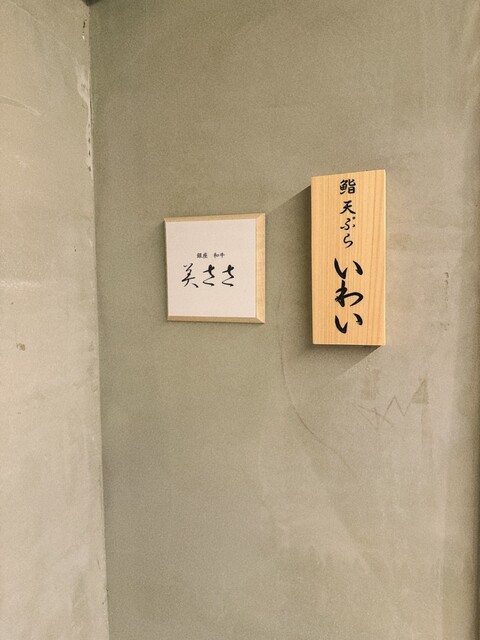 銀座 和牛
美ささ
鮨
天ぷら
いわい